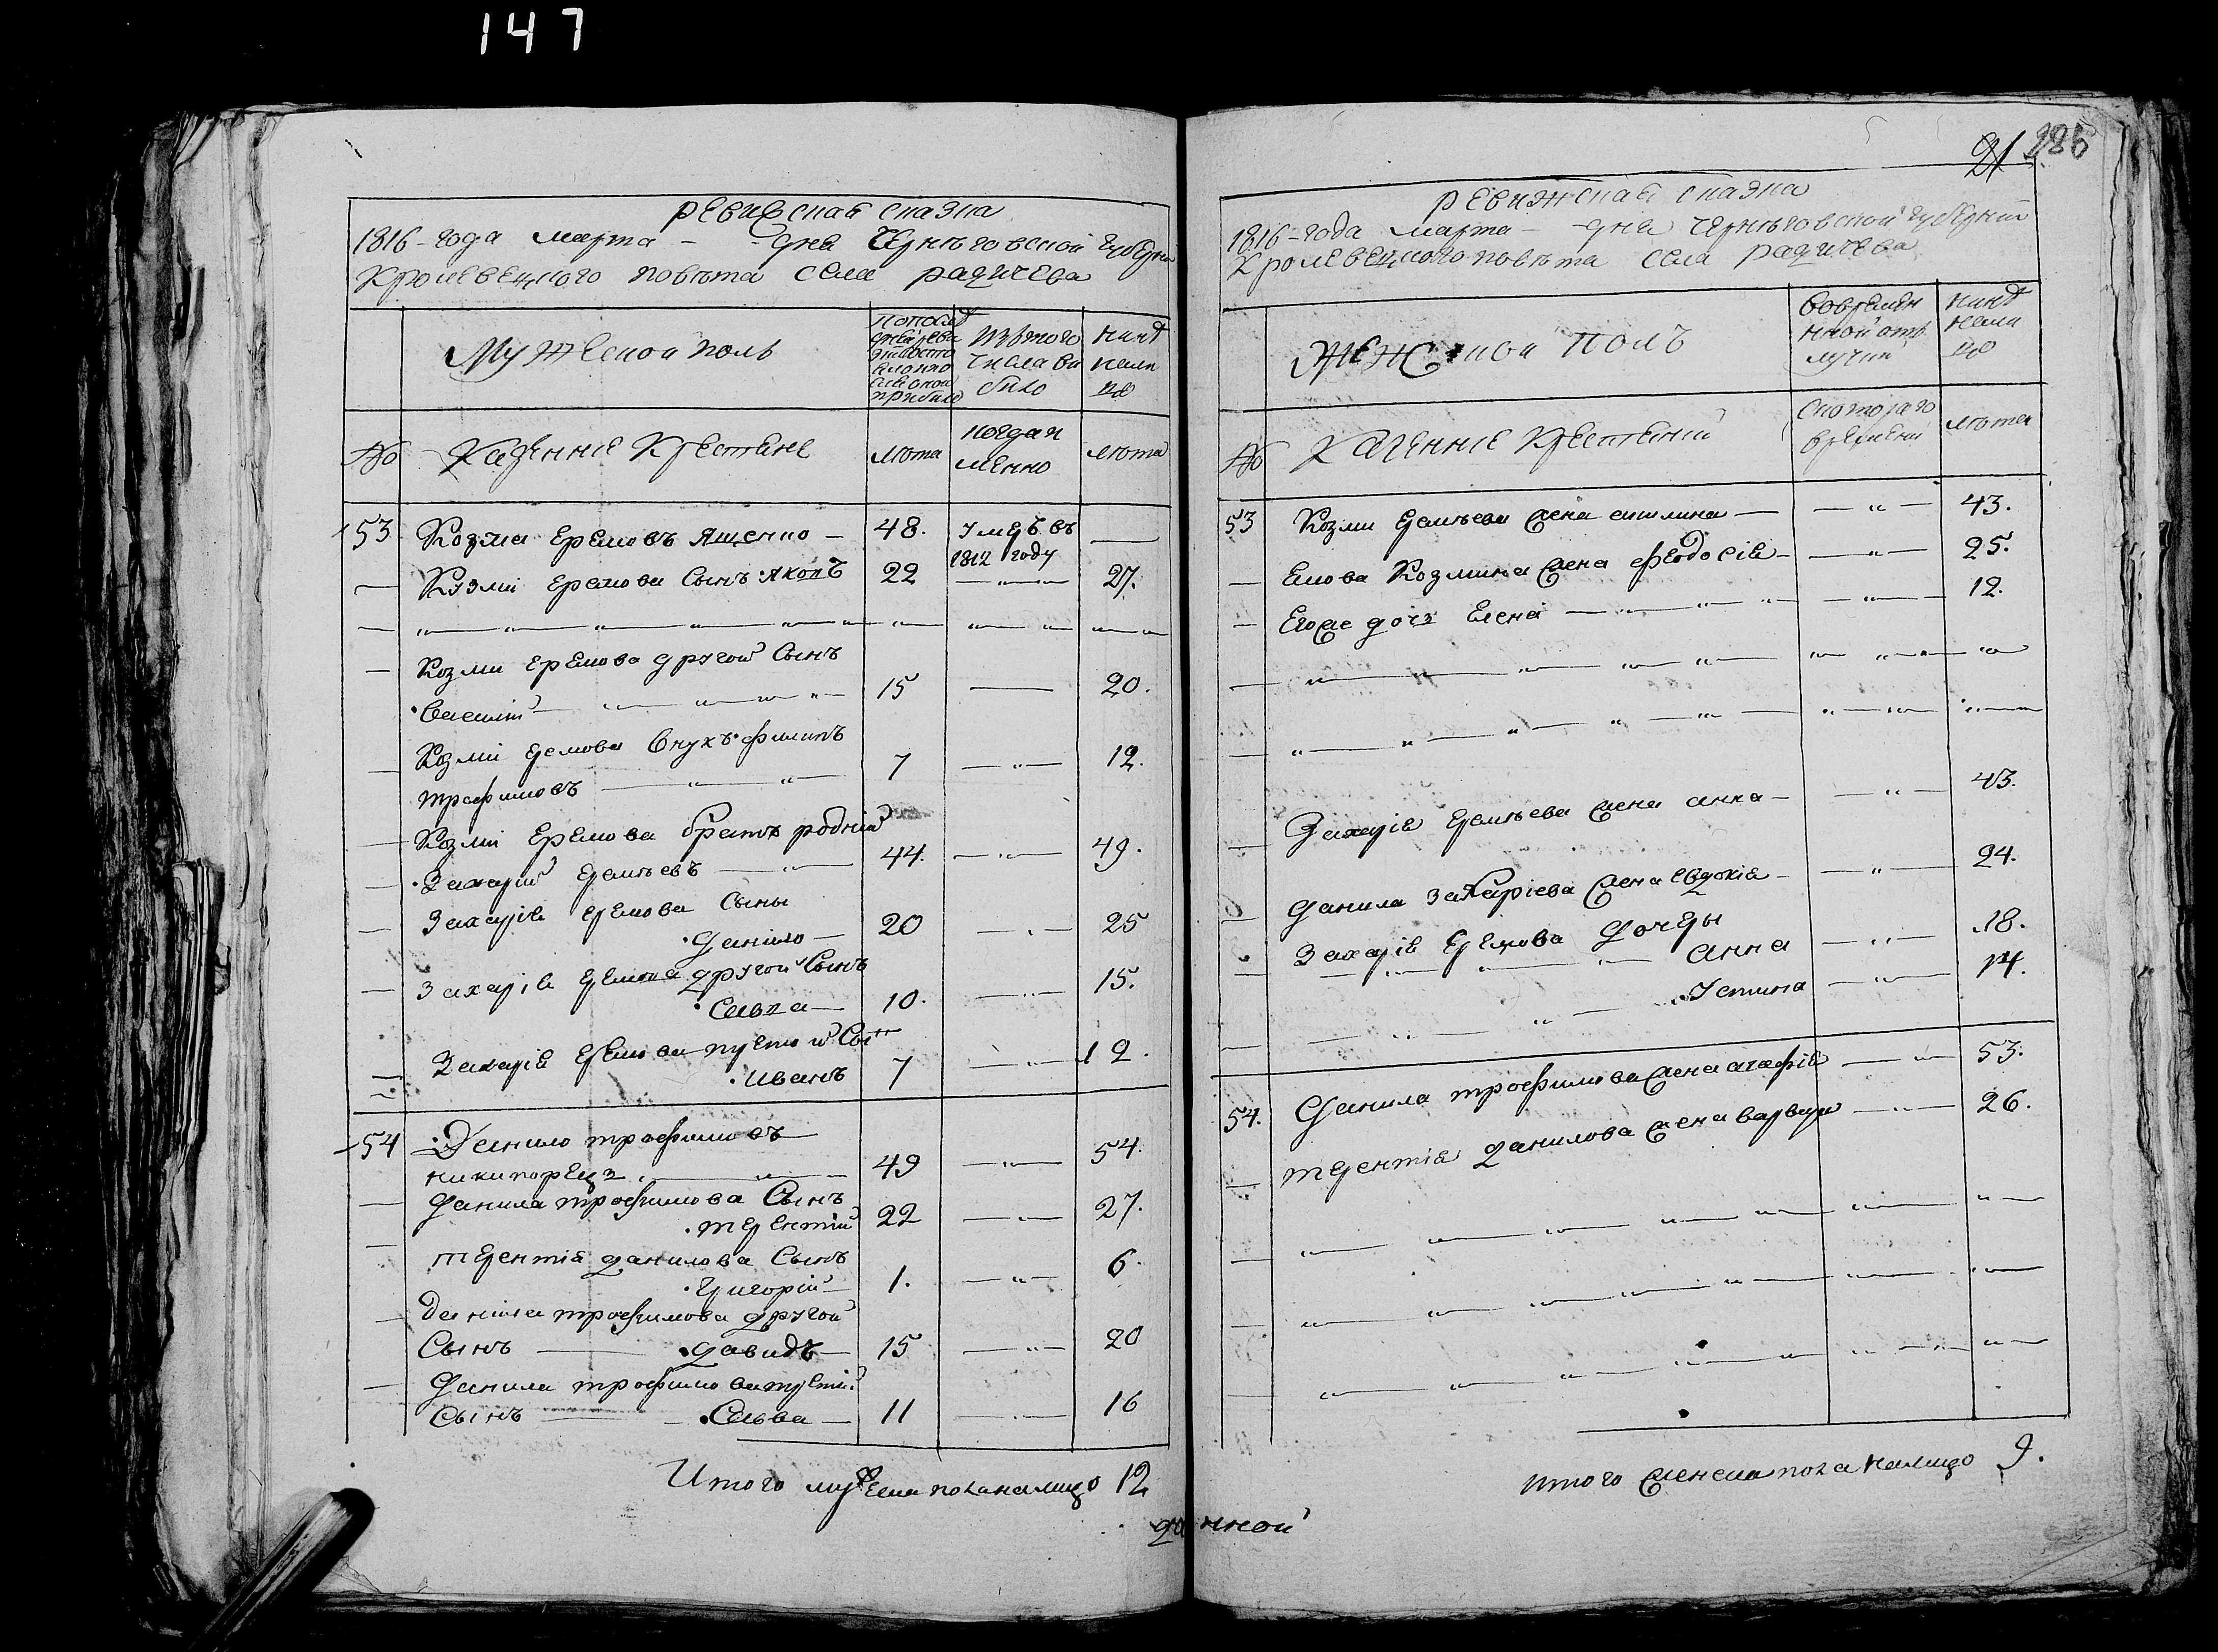 147
ревижская сказка
1816-года марта - - дня Черниговской губерни
Кролевецкого повѣта села радичева
Мужеской полъ
Изътого числа выбило
нинѣ налицо
№
Казенние Крестяне
лѣта
когда имѣнно
лѣта
53 Козма Еремовъ Ященко - 48. Умерь въ 1812 году —
Козми Еремова Сынъ Яковъ 22 — 27.
Козми Еремова другой Сынъ
Василий — 15 — 20.
Козми Еремова Внукъ Филипъ
трофимовъ — 7 — 12.
Козми Еремова братъ родній
Захарий Еремѣевъ — 44. — 49.
Захарія Еремова Сыны
Данило — 20 — 25
Захарія Еремова другой Сынъ
Савка — 10. — 15.
Захарія Еремова третій Сынъ
Иванъ 7 — 12.
54 Данило трофимовъ
никипорецъ — 49 — 54.
Данила трофимова Сынъ
терентий 22 — 27.
терентія данилова Сынъ
Григорій — 1. — 6.
Данила трофимова другой
Сынъ — давидъ — 15 — 20
Данила трофимова третій
Сынъ — Савва — 11 — 16
Итого мужеска пола налицо 12
21 285
ревижская сказка
1816-года марта - - дня Черниговской губерний
Кролевецкого повѣта села радичева
Женской полъ
вовременной отлучки
нинѣ налицо
№
Казенние Крестяний
Скоторого времени
лѣта
53 Козми Еремѣева жена — 43.
Якова Козмина жена Феодосія — 25.
Егоже дочь Елена — 12.
Захарія Еремѣева жена анна — 43.
Данила Захаріева жена Евдокія — 24.
Захарія Еремова Дочеры
Анна — 18.
Устина — 14.
54. Данила трофимова жена агафія — 53.
терентія данилова жена варвара — 26.
итого женска пола налицо 9.
данной